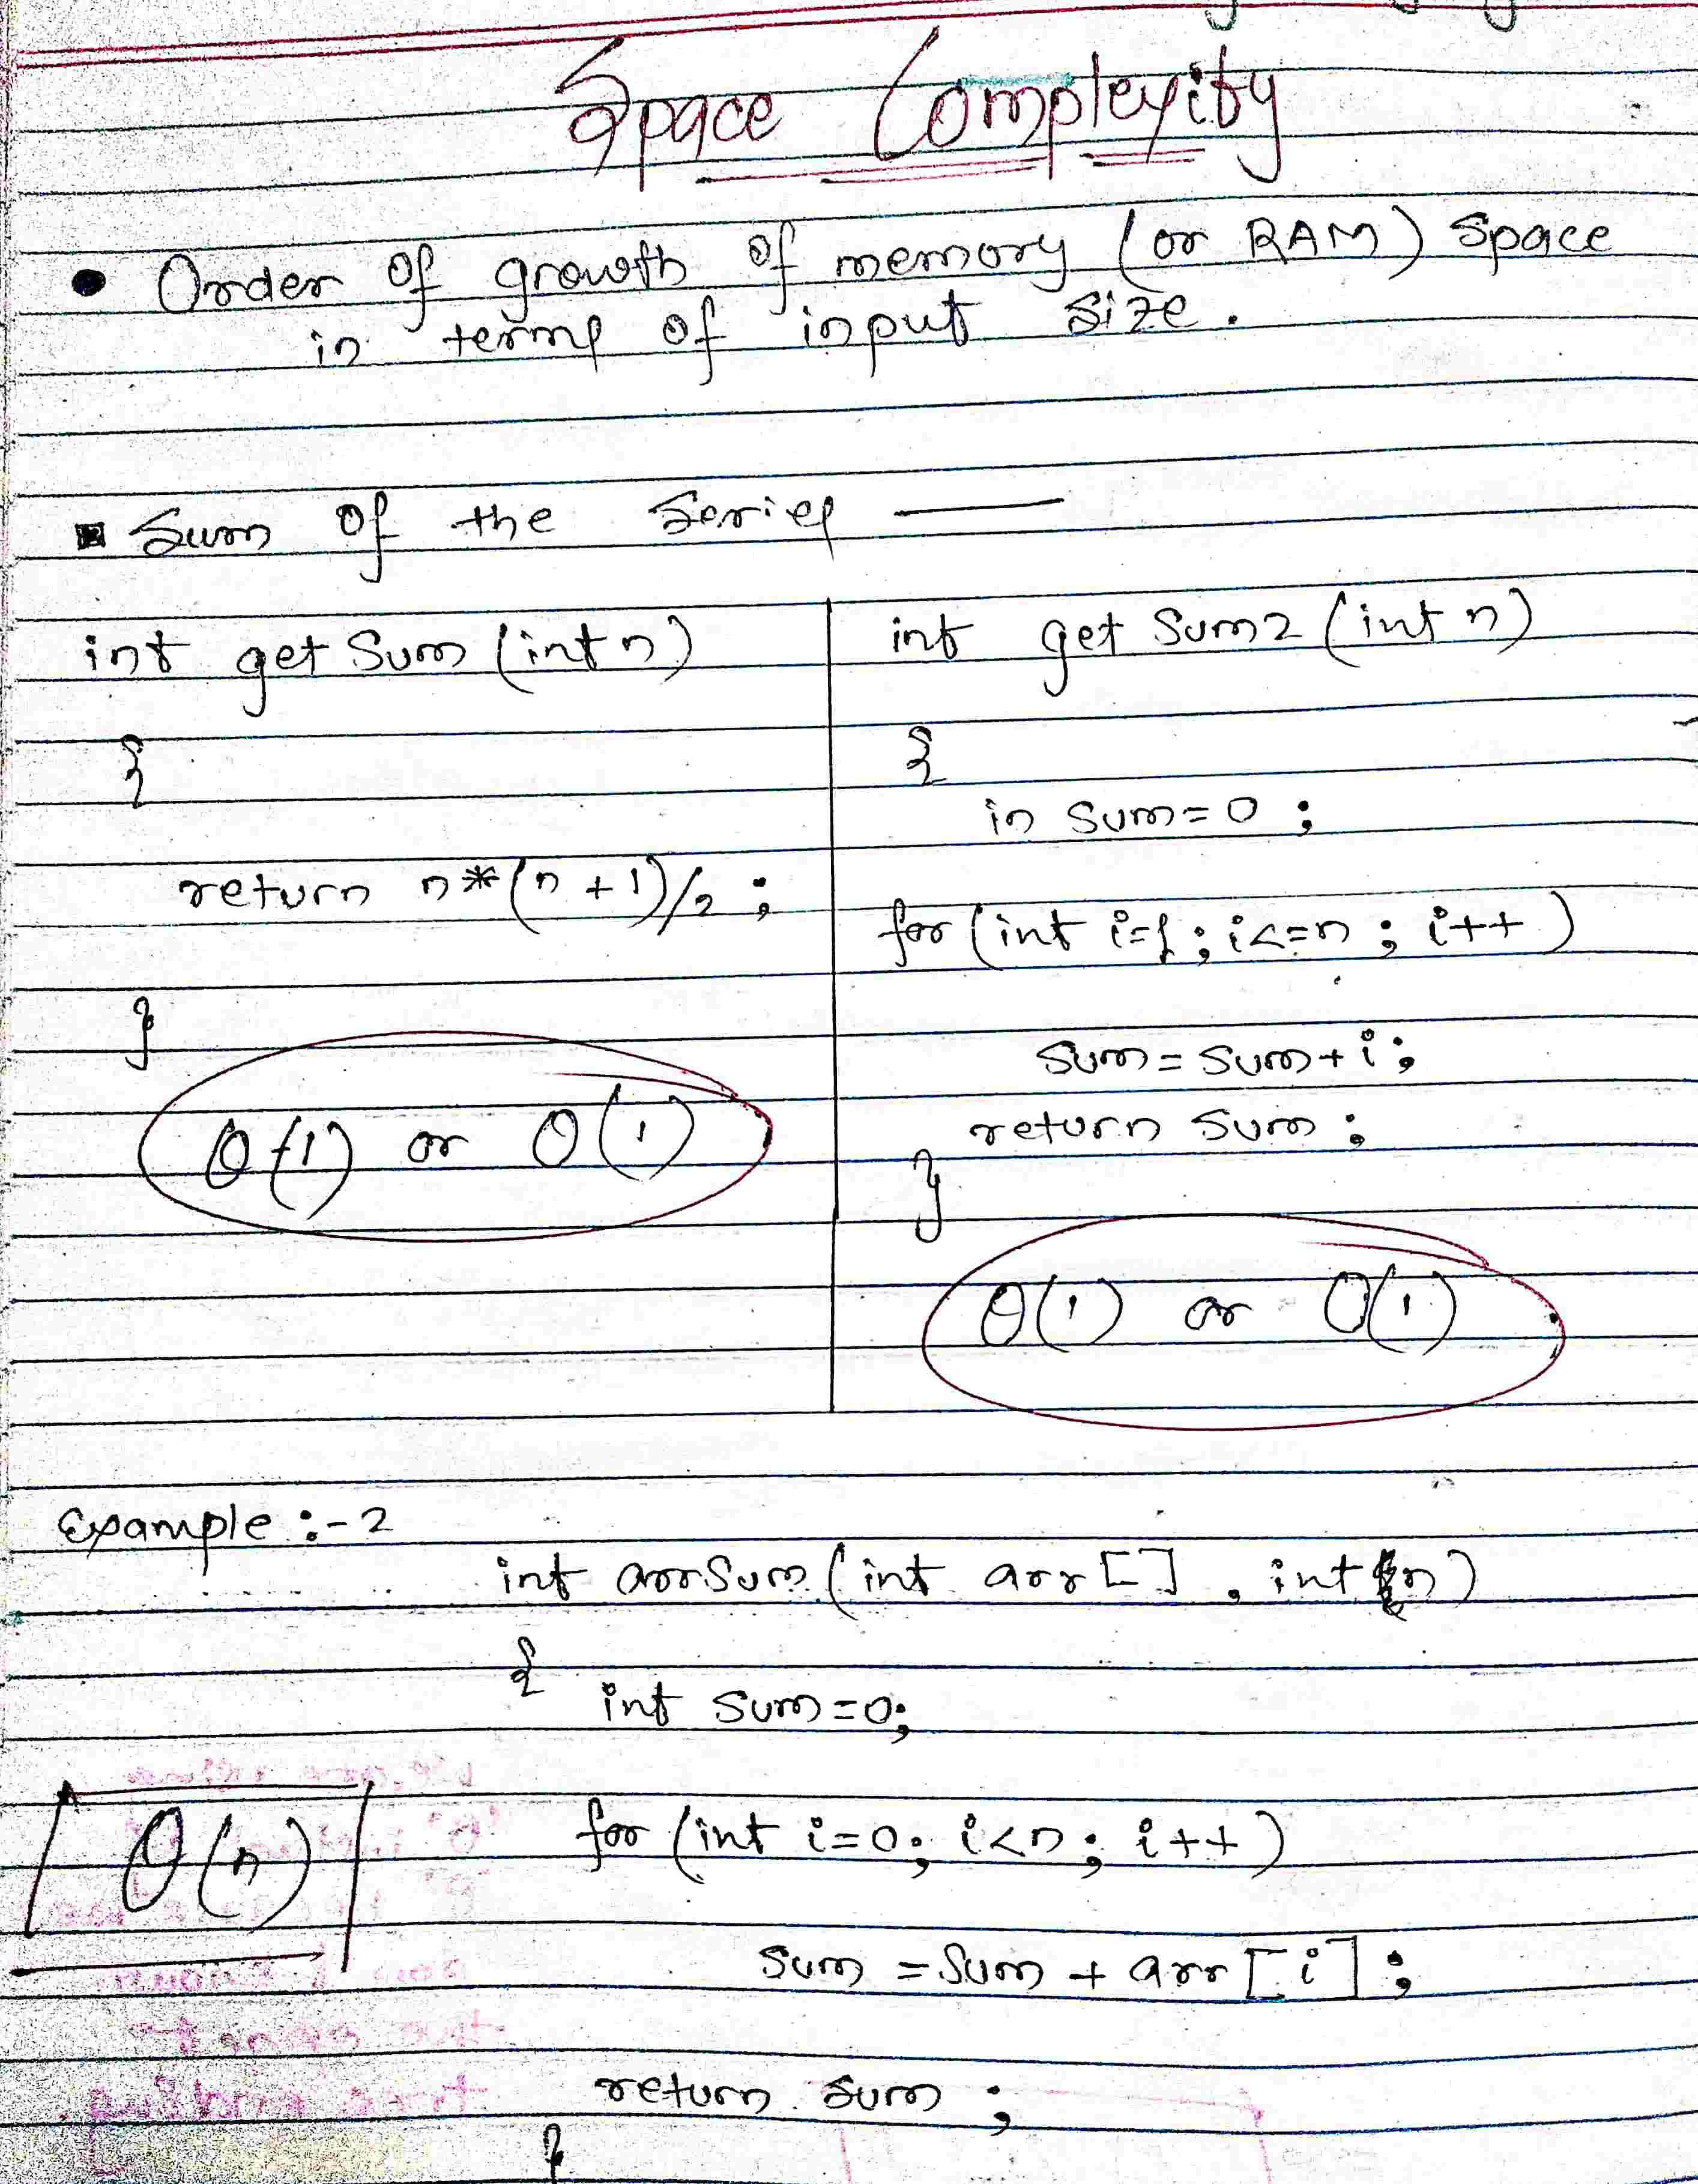 Space Complexity
• Order of growth of memory (or RAM) Space
in terms of input size.
▪ Sum of the Series —
int getSum (int n)
{
return n*(n+1)/2 ;
}
θ(1) or O(1)
int get Sum2 (int n)
{
in Sum=0 ;
for (int i=1 ; i<=n ; i++ )
sum = sum + i ;
return sum ;
}
θ(1) or O(1)
Example :- 2
int arrSum (int arr [ ] , int n)
{
int sum = 0;
θ(n)
for (int i=0; i<n; i++)
sum = sum + arr [ i ] ;
return sum ;
}